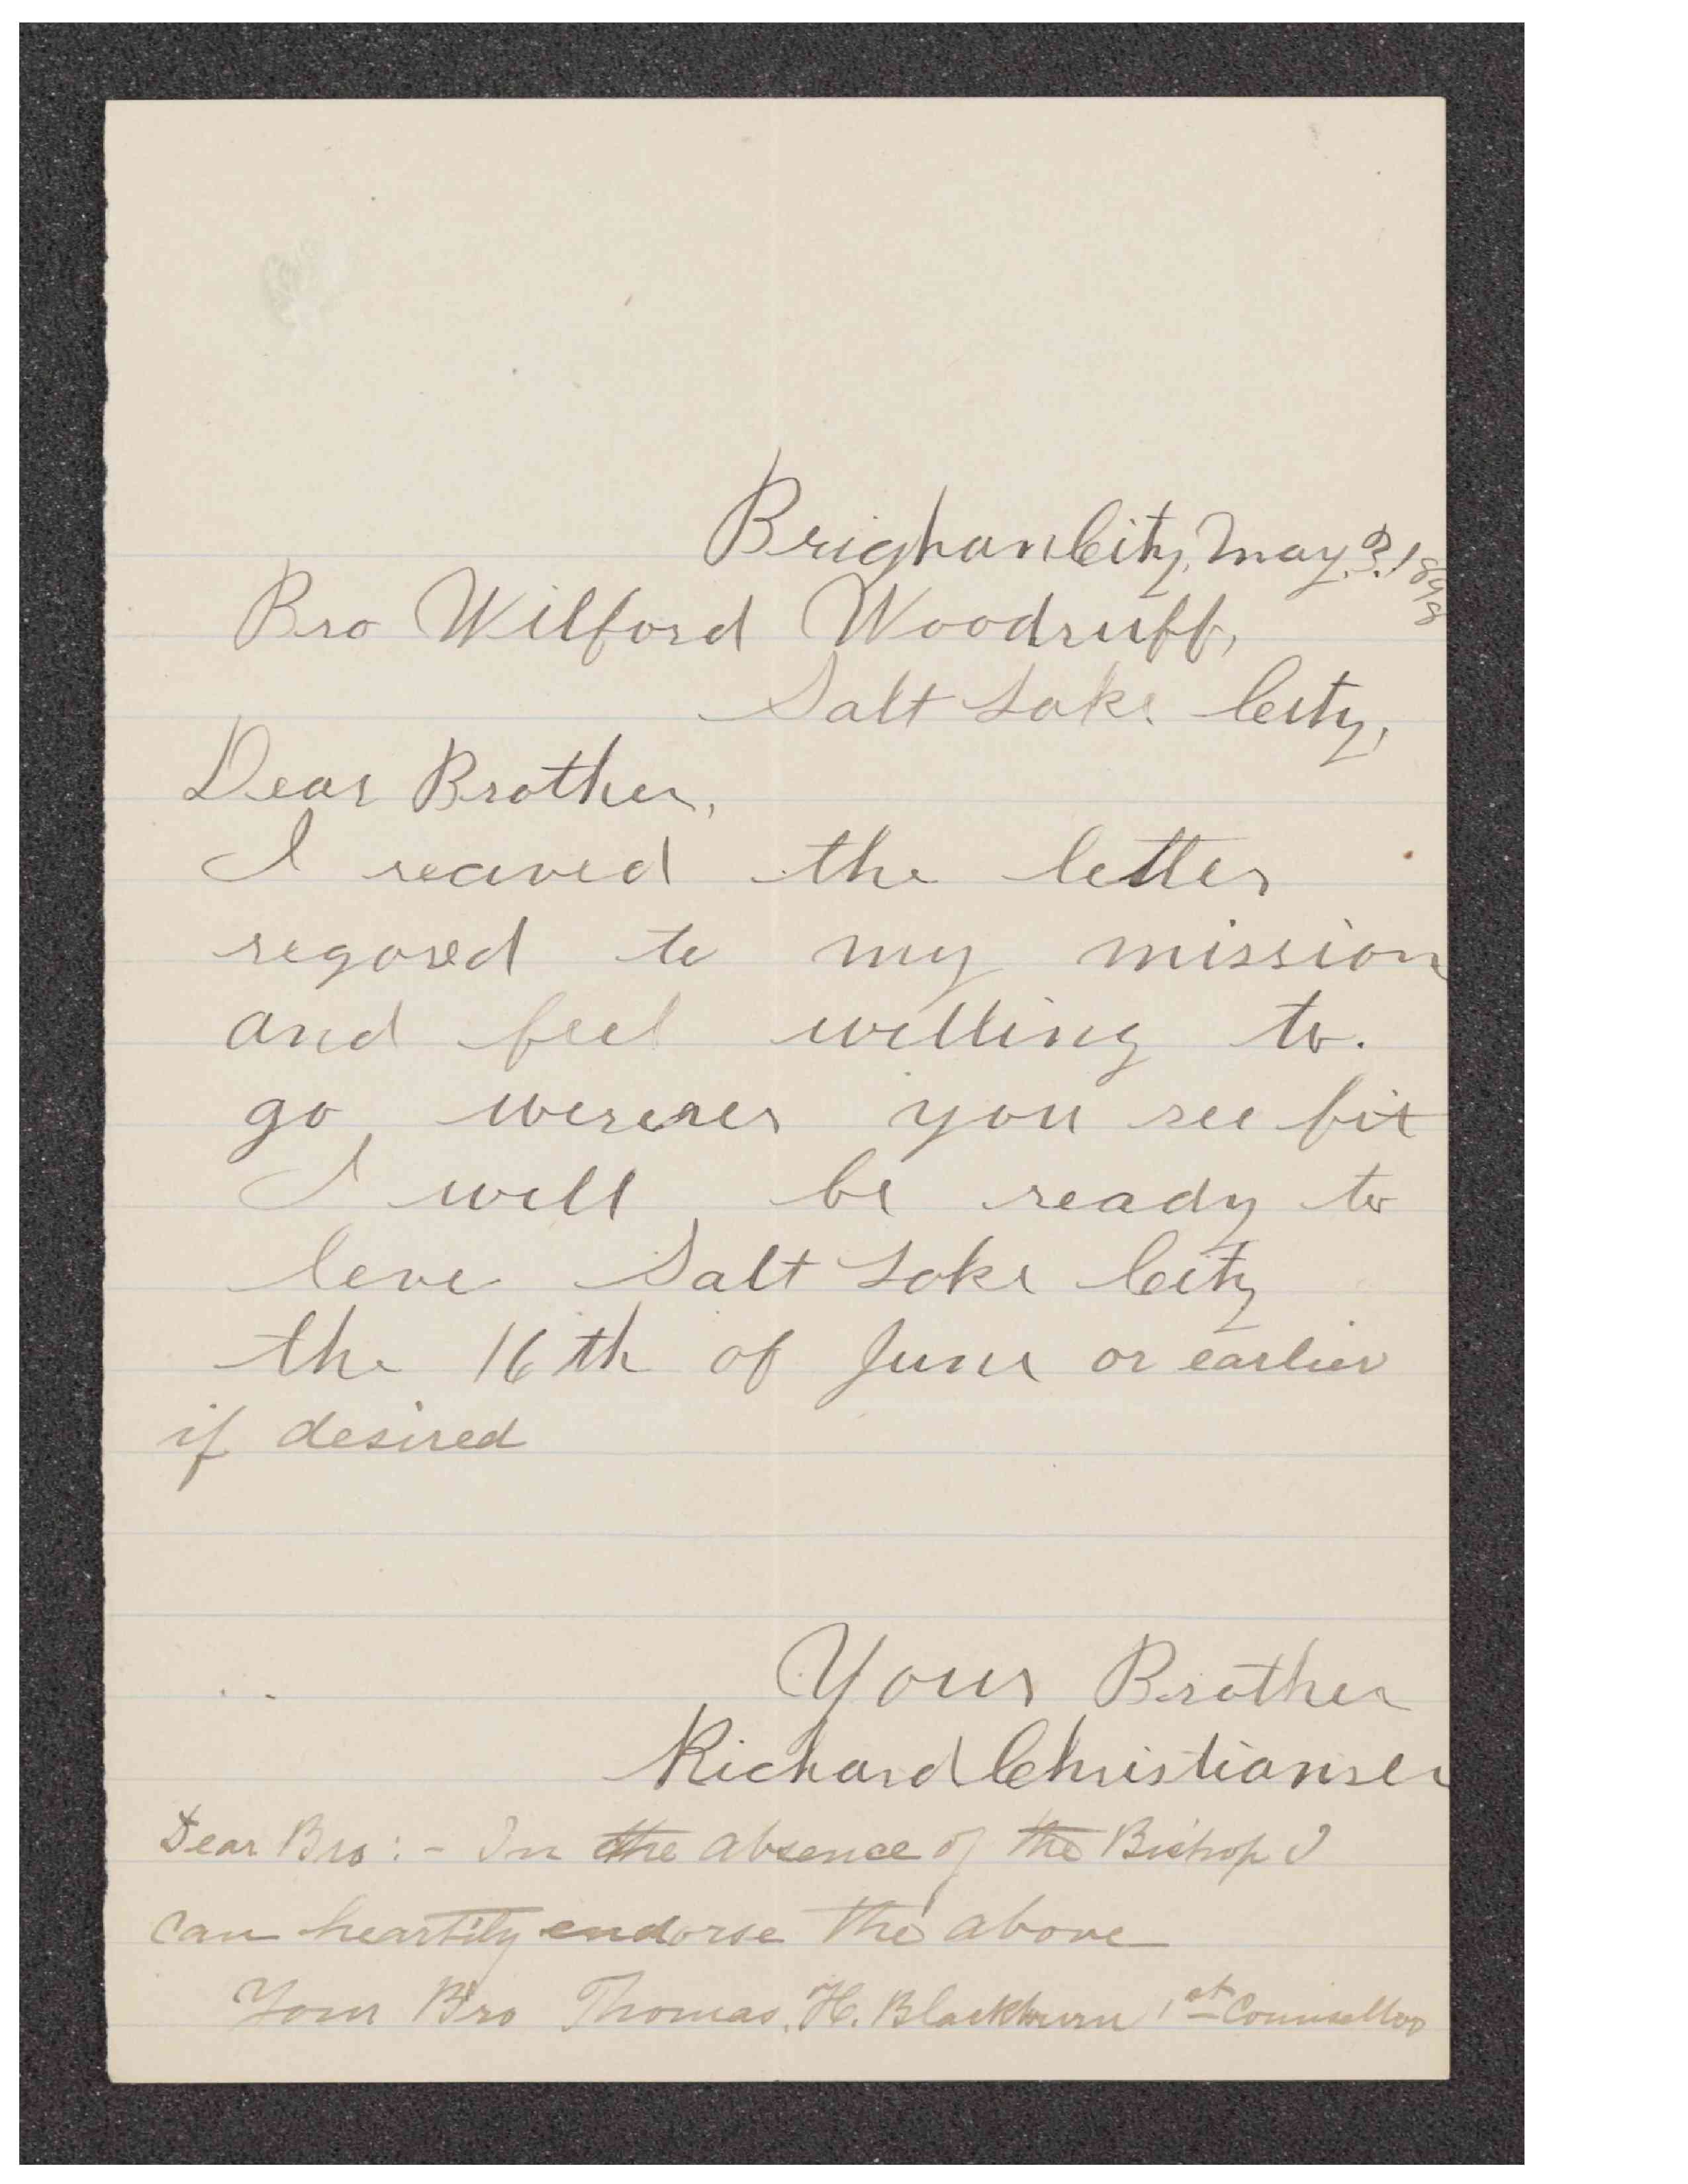 Brighan City, May. 3. 1898
Bro Wilford Woodruff,
Salt Lake City,
Dear Brother,
I recived the letter
regared to my mission
and feel willing to.
go werever you see fit
I will be ready to
leve Salt Lake City
the 16th of June or earlier
if desired
Your Brother
Richard Christiansen
Dear Bro: - In the absence of the Bishop I
can heartily endorse the above
Your Bro Thomas. H. Blackburn 1st Counsellor